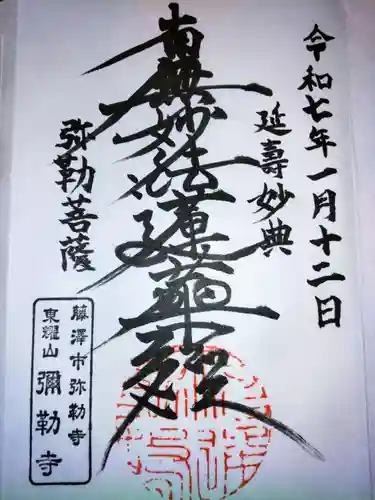 令和七年一月十二日
延壽妙典
南無妙法蓮華経
弥勒菩薩
藤澤市弥勒寺
東耀山
彌勒寺